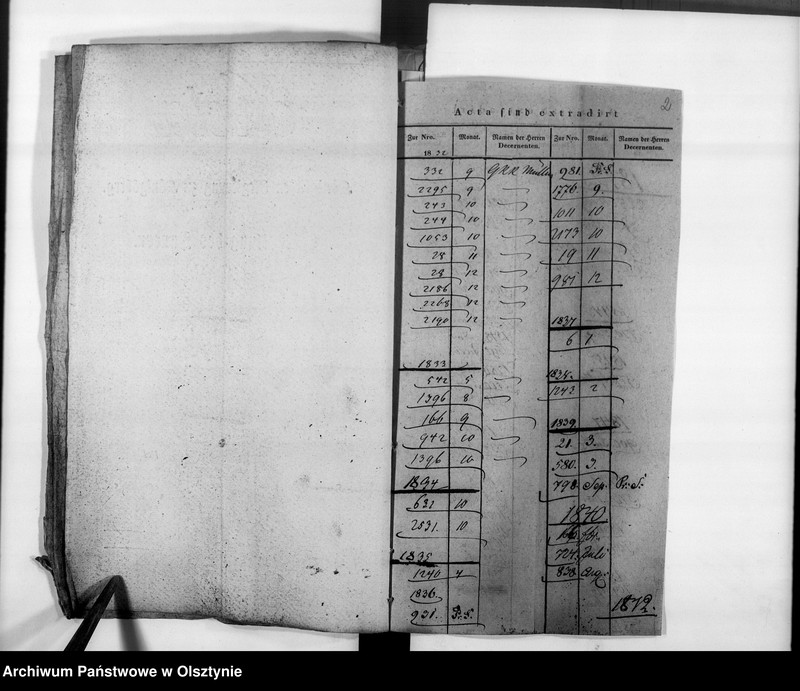 2
Acta sind extradirt
Zur Nro. Monat. Namen der Herren Decernenten.
1832
332 9 Müller
2295 9
243 10
244 10
1053 10
28 11
28 12
2186 12
2268 12
2190 12
1833
542 5
1396 8
166 9
942 10
1396 10
1834
631 10
2531. 10
1835
1240 4
1836.
931.
Zur Nro. Monat. Namen der Herren Decernenten.
981.
1776 9.
1011 10
2173 10
19 11
981 12
1837
6 1
1838.
1243 2
1839
21. 3.
580. 3.
798 Sep.
1840
724. Juli
838. Aug.
1872.
Archiwum Państwowe w Olsztynie